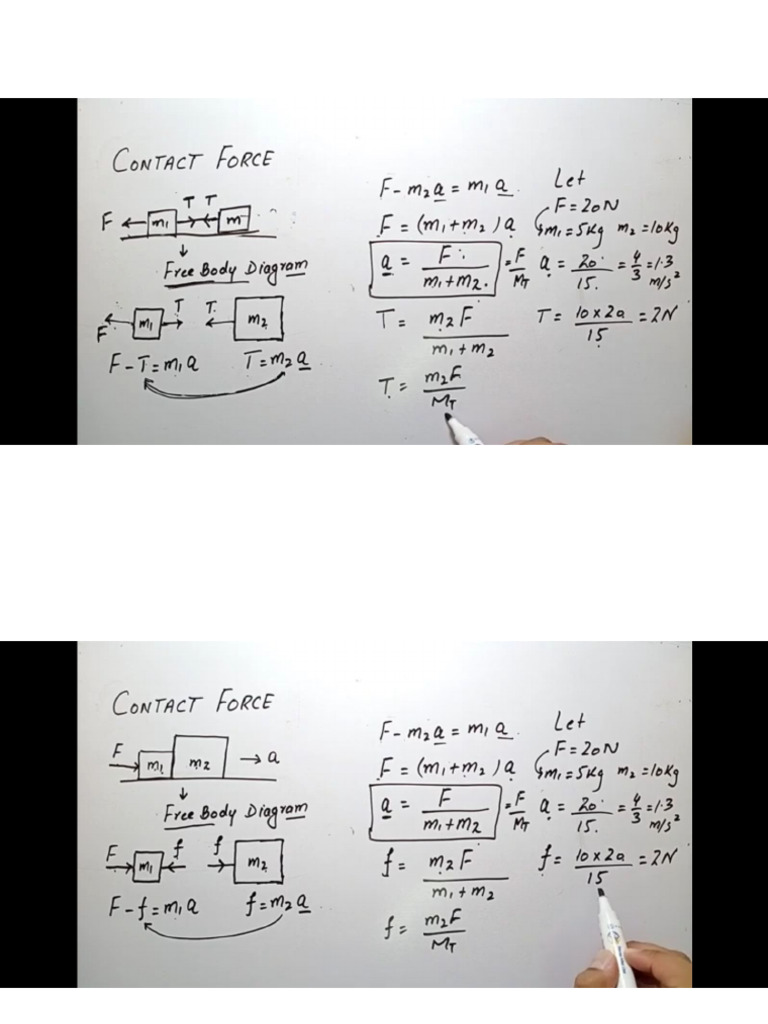 CONTACT FORCE
T T
F m₁ m
Free Body Diagram
F m₁ T T m₂
F - T = m₁a T = m₂a
F - m₂a = m₁a
F = (m₁ + m₂) a
a = F / m₁ + m₂ = F / M_T
T = m₂F / m₁ + m₂
T = m₂F / M_T
Let
F = 20N
m₁ = 5Kg m₂ = 10Kg
a = 20 / 15 = 4/3 = 1.3 m/s²
T = 10 × 20 / 15 = 2N
CONTACT FORCE
F m₁ m₂ → a
Free Body Diagram
F m₁ f f m₂
F - f = m₁a f = m₂a
F - m₂a = m₁a
F = (m₁ + m₂) a
a = F / m₁ + m₂ = F / M_T
f = m₂F / m₁ + m₂
f = m₂F / M_T
Let
F = 20N
m₁ = 5Kg m₂ = 10Kg
a = 20 / 15 = 4/3 = 1.3 m/s²
f = 10 × 20 / 15 = 2N